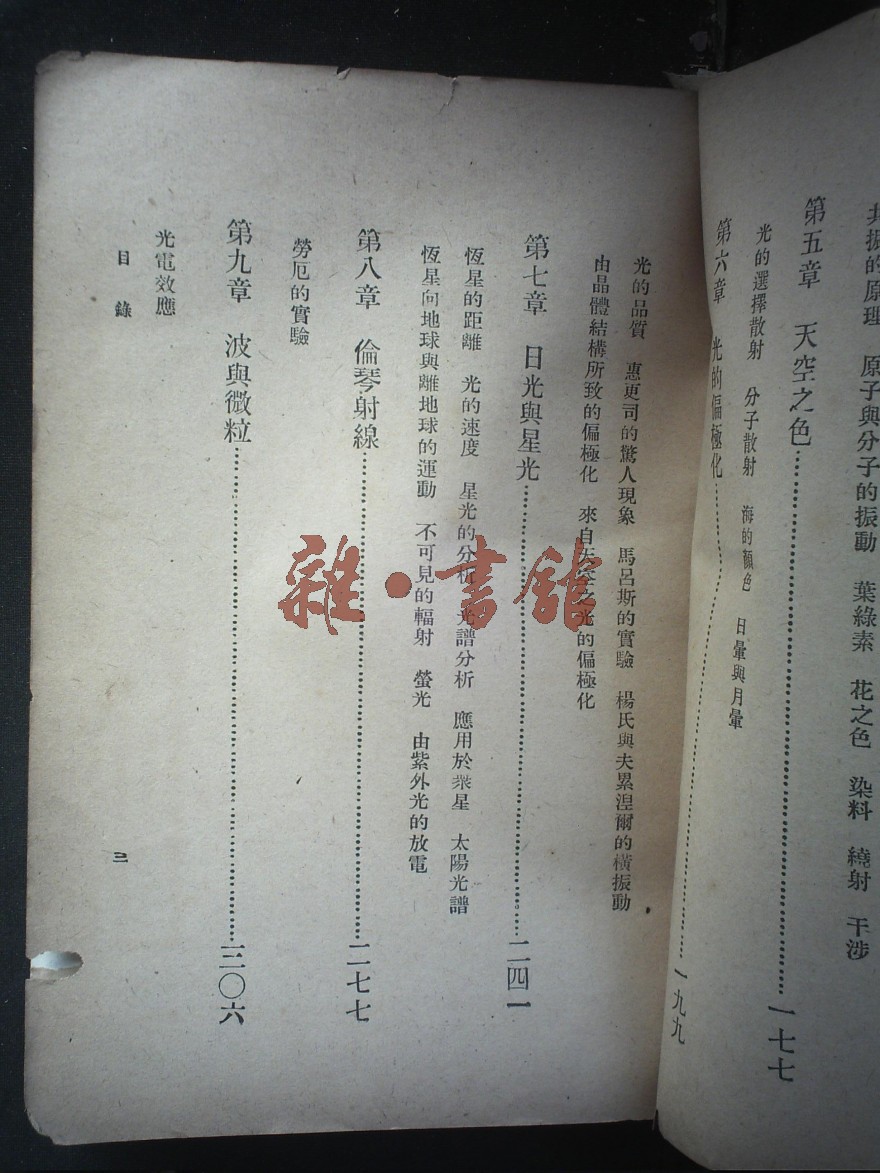 共振的原理　原子與分子的振動　葉綠素　花之色　染料　繞射　干涉
第五章　天空之色……一七七
光的選擇散射　分子散射　海的顏色　日暈與月暈
第六章　光的偏極化……一九九
光的品質　惠更司的驚人現象　馬呂斯的實驗　楊氏與夫累涅爾的橫振動
由晶體結構所致的偏極化　來自天空之光的偏極化
第七章　日光與星光……二四一
恆星的距離　光的速度　星光的分析　光譜分析　應用於衆星　太陽光譜
恆星向地球與離地球的運動　不可見的輻射　螢光　由紫外光的放電
第八章　倫琴射線……二七七
勞厄的實驗
第九章　波與微粒……三〇六
光電效應
目錄
三
雜·書館